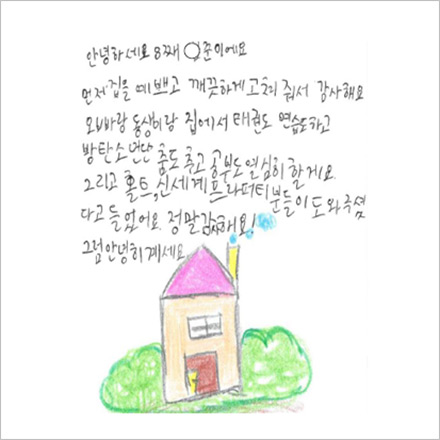 안녕하세요 8째 ○준이에요
먼저 집을 예쁘고 깨끗하게 고쳐 줘서 감사해요
오빠랑 동생이랑 집에서 태권도 연습도하고
방탄소년단 춤도 추고 공부도 열심히 할게요.
그리고 홀트, 신세계프라퍼티분들이 도와주셨
다고 들었어요. 정말감사해요!
그럼안녕히계세요